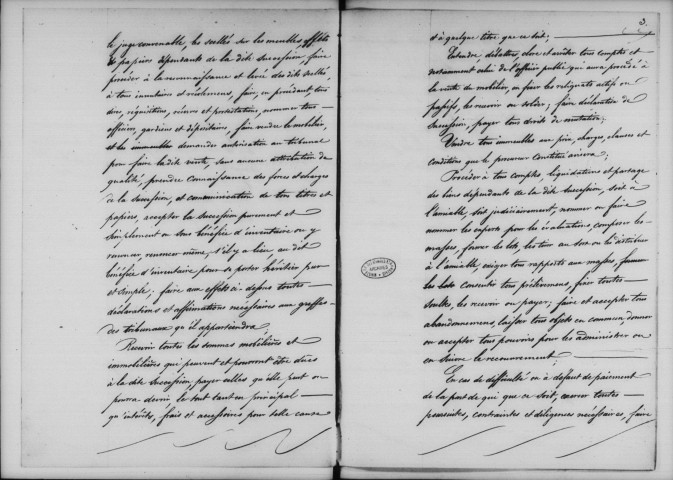 le juge convenable, les scellés sur les meubles, effets
& papiers dépendants de la dite succession, faire
procéder à la reconnaissance et levée des dits scellés,
à tous inventaires et récolements, faire, en procédant, tous
dires, réquisitions, réserves et protestations, nommer tous
officiers, gardiens et dépositaires, faire vendre le mobilier,
et les immeubles demander autorisation au tribunal
pour faire la dite vente, sans aucune attestation de
qualité, prendre connaissance des forces et charges
de la succession, et communication de tous titres et
papiers, accepter la succession purement et
simplement ou sous bénéfice d'inventaire ou y
renoncer, renoncer même, s'il y a lieu, au dit
bénéfice d'inventaire pour se porter héritier pur
et simple; faire aux effets ci-dessus toutes
déclarations et affirmations nécessaires aux greffes
des tribunaux qu'il appartiendra;
Recevoir toutes les sommes mobilières et
immobilières qui peuvent et pourront être dues
à la dite succession, payer celles qu'elle peut ou
pourra devoir le tout tant en principal
qu'intérêts, frais et accessoires pour telle cause
3.
et à quelque titre que ce soit;
Entendre, débattre, clore et arrêter tous comptes et
notamment celui de l'officier public qui aura procédé à
la vente du mobilier, en fixer les reliquats actifs ou
passifs, les recevoir ou solder; faire déclaration de
succession, payer tous droits de mutation;
Vendre tous immeubles aux prix, charges, clauses et
conditions que le procureur constitué avisera;
Procéder à tous comptes, liquidations et partage
des biens dépendants de la dite succession, soit à
l'amiable, soit judiciairement, nommer ou faire
nommer les experts pour les évaluations, composer les
masses, former les lots, les tirer au sort ou les distribuer
à l'amiable, exiger tous rapports aux masses, fournir
les lots consentir tous prélèvemens, faire toutes
soultes, les recevoir ou payer; faire et accepter tous
abandonnemens, laisser tous objets en commun, donner
ou accepter tous pouvoirs pour les administrer ou
en suivre le recouvrement;
En cas de difficulté ou à défaut de paiement
de la part de qui que ce soit, exercer toutes
poursuites, contraintes et diligences nécessaires, faire